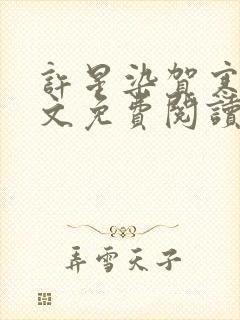 許星染賀寒
文免費閱讀
弄雪天子